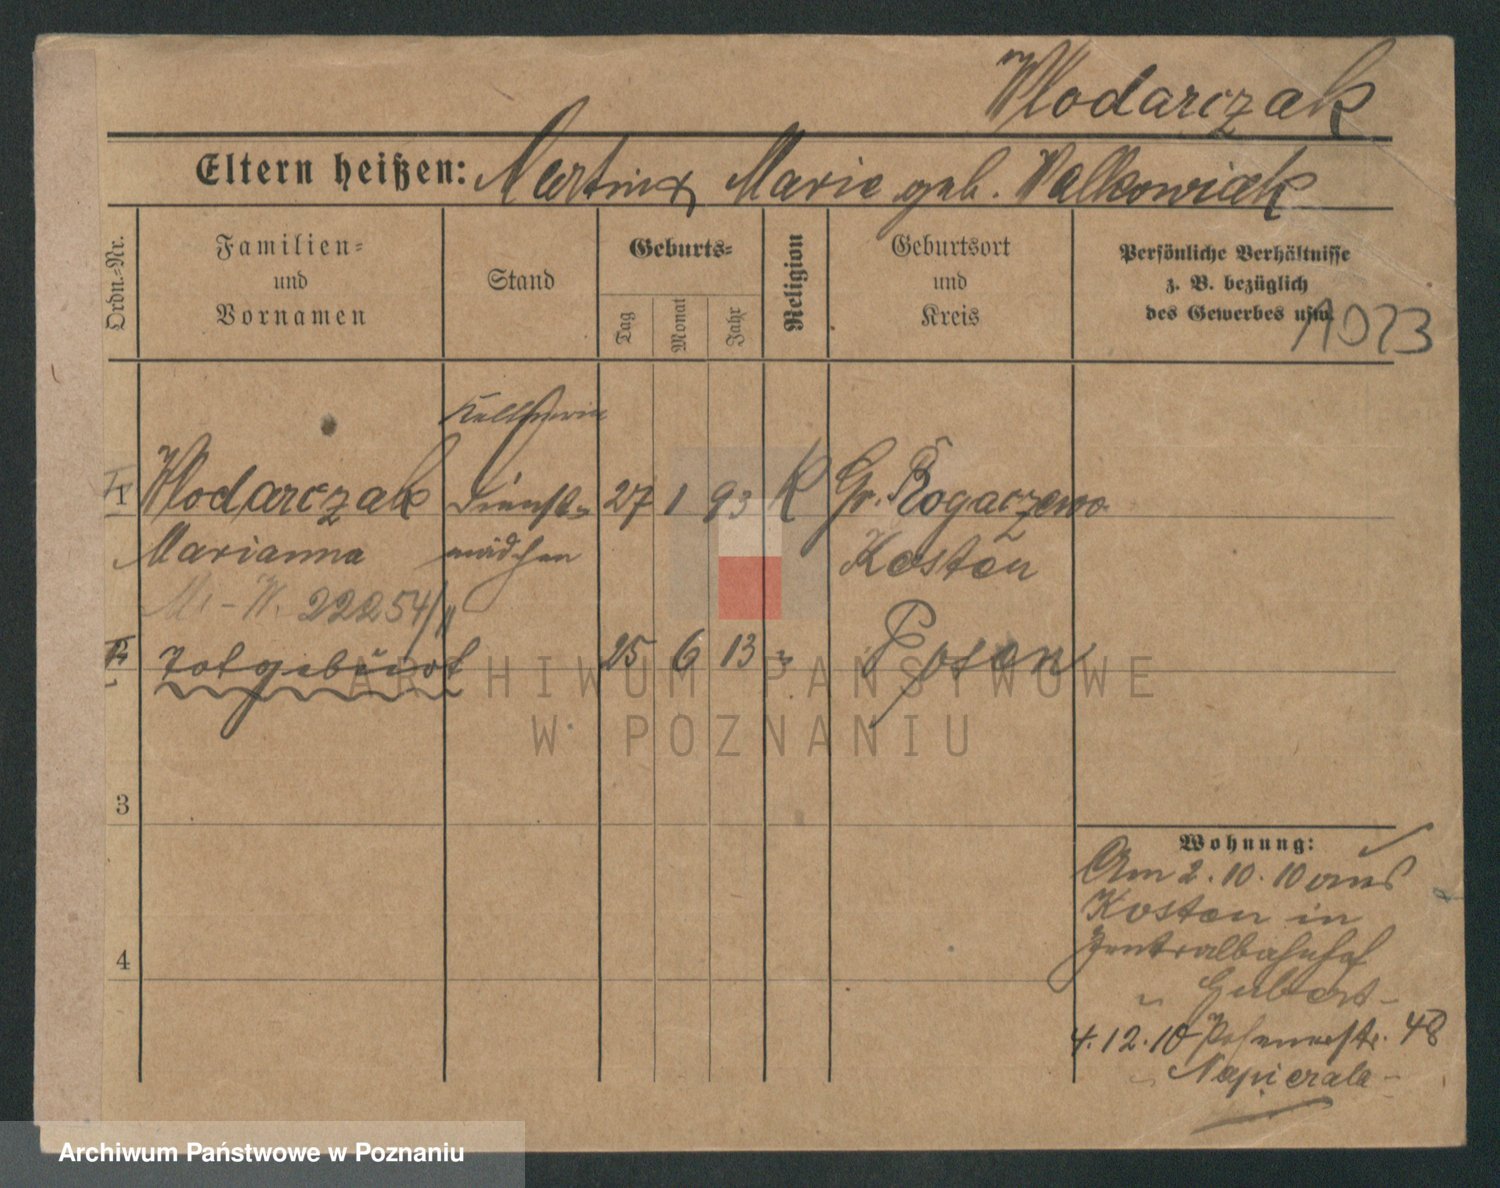 Wlodarczak
Eltern heißen: Martin x Marie geb. Walkowiak
Ordn.-Nr.
Familien-
und
Vornamen
Stand
Geburts-
Tag
Monat
Jahr
Religion
Geburtsort
und
Kreis
Persönliche Verhältnisse
z. B. bezüglich
des Gewerbes usw.
1023
Kellnerin
1 Wlodarczak Dienst- 27 1 93 K Gr. Rogaczewo
Marianna mädchen Kosten
M.-W. 22254/11
2 Totgeburt 25 6 13 " Posen
3
4
Wohnung:
Am 2.10.10 aus
Kosten in
Zentralbahnhof
" Gubert-
4.12.10 48
" Napierala -
ARCHIWUM PAŃSTWOWE
W POZNANIU
Archiwum Państwowe w Poznaniu